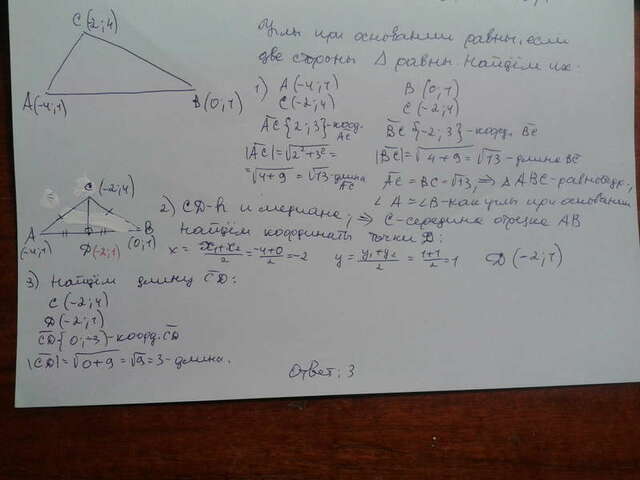 C(-2;4)
A(-4;1)
B(0,1)
Углы при основании равны, если
две стороны Δ равны. Найдём их:
1) A(-4;1)
C(-2;4)
AC{2;3}-коорд. AC
|AC|=√2²+3²=
=√4+9=√13-длина AC
B(0,1)
C(-2;4)
BC{-2;3}-коорд. BC
|BC|=√4+9=√13-длина BC
AC=BC=√13,⇒ΔABC-равнобедр.,
∠A=∠B-как углы при основании
C(-2;4)
A
(-4;1)
B
(0;1)
D(-2;1)
2) CD-h и медиана,⇒ C-середина отрезка AB
Найдём координаты точки D:
x=x₁+x₂/2=-4+0/2=-2 y=y₁+y₂/2=1+1/2=1 D(-2;1)
3) Найдём длину CD:
C(-2;4)
D(-2;1)
CD{0;-3}-коорд. CD
|CD|=√0+9=√9=3-длина.
Ответ: 3